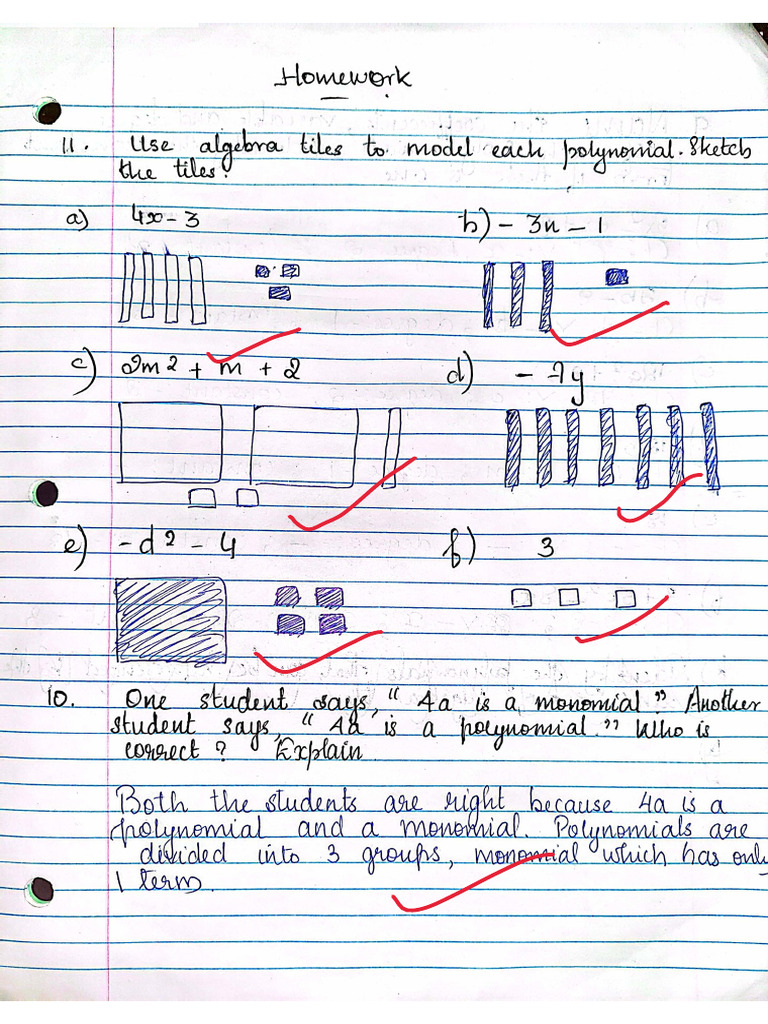 Homework
11. Use algebra tiles to model each polynomial. Sketch
the tiles?
a) 4x - 3
b) - 3n - 1
c) 2m2 + m + 2
d) - 7y
e) - d2 - 4
f) 3
10. One student says, " 4a is a monomial " Another
student says, " 4a is a polynomial." Who is
correct ? Explain
Both the students are right because 4a is a
polynomial and a monomial. Polynomials are
divided into 3 groups, monomial which has only
1 term.